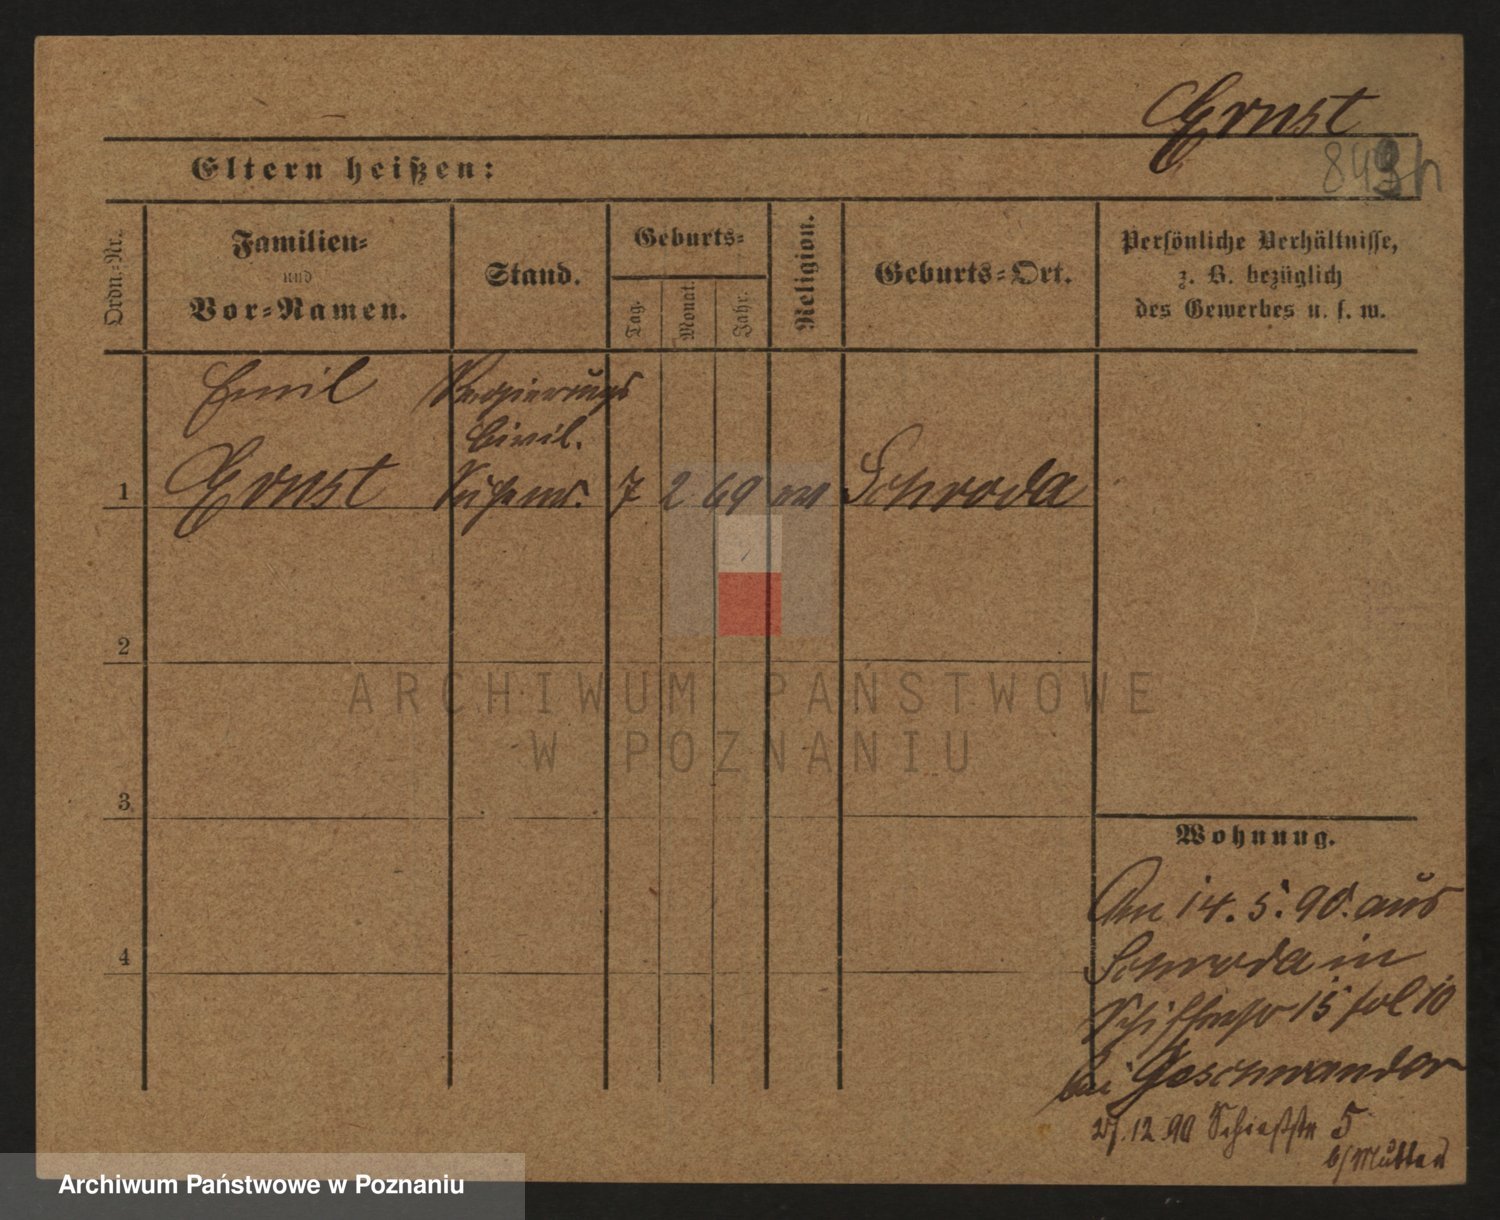 Ernst
843h
Eltern heißen:
Ordn.-Nr.
Familien-
und
Vor-Namen.
Stand.
Geburts-
Tag.
Monat.
Jahr.
Religion.
Geburts-Ort.
Persönliche Verhältnisse,
z. B. bezüglich
des Gewerbes u. s. w.
Emil Regierungs
Civil.
1 Ernst 7 2 69 Schroda
2
ARCHIWUM PAŃSTWOWE
W POZNANIU
3
Wohnung.
Am 14. 5. 90. aus
4
Schroda in
15 10
bei Geschwandor
27. 12 90 Schießstr 5
b/ Mutter
Archiwum Państwowe w Poznaniu